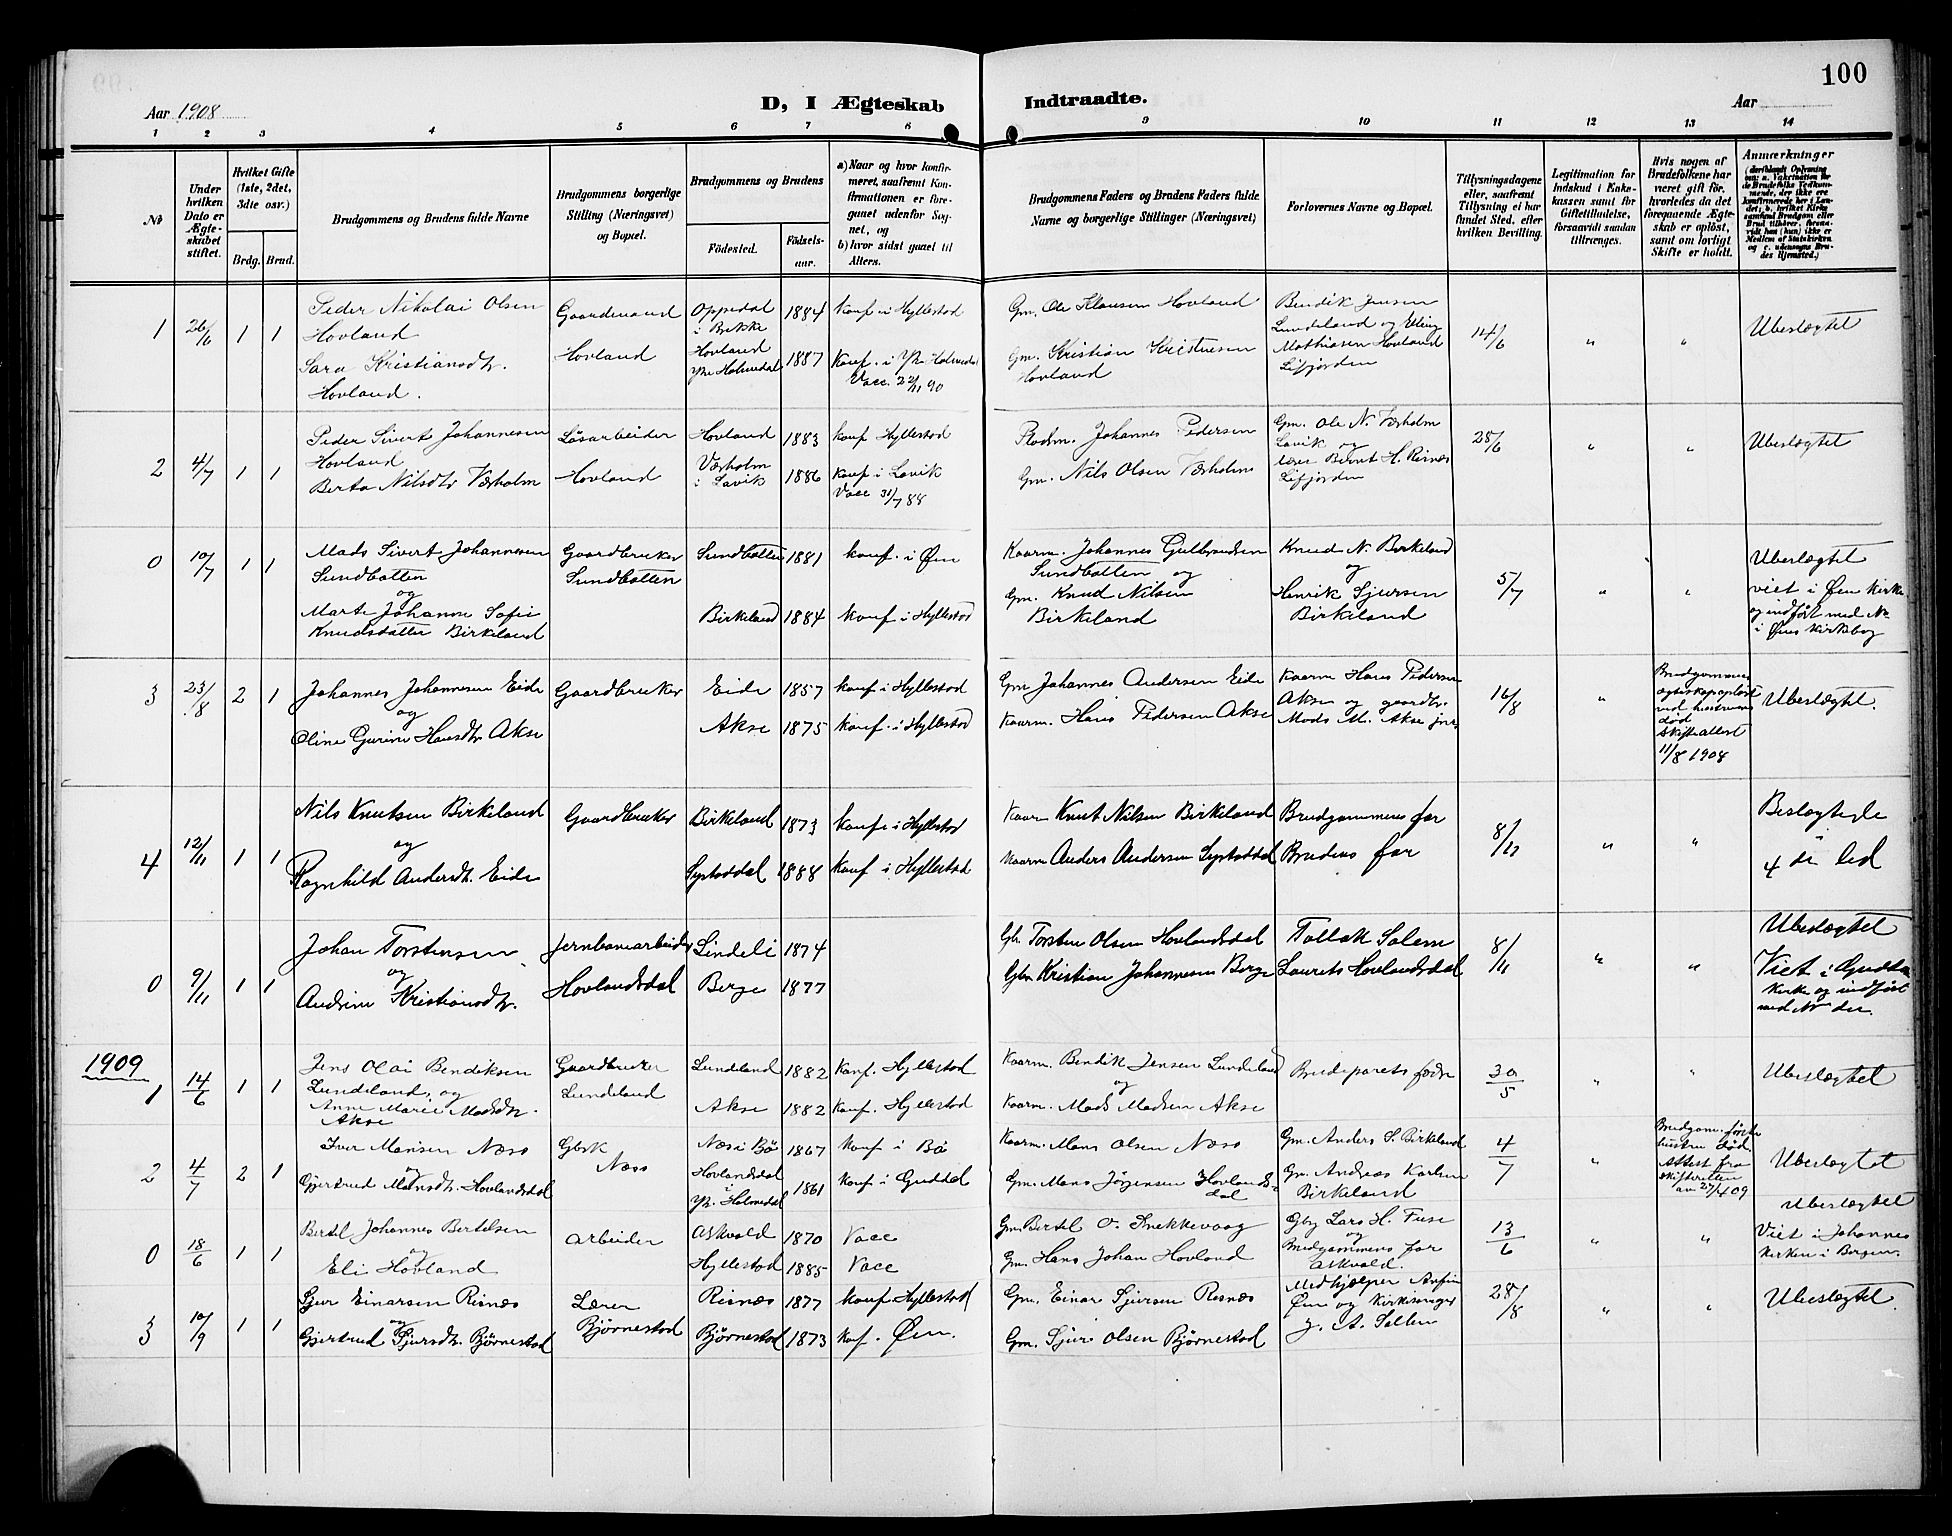 100
Aar 1908
D, I Ægteskab Indtraadte.
Aar
1 2 3 4 5 6 7 8 9 10 11 12 13 14
No
Under hvilken Dato er Ægteskabet stiftet.
Hvilket Gifte (1ste, 2det, 3die osv.)
Brdg. Brud.
Brudgommens og Brudens fulde Navne
Brudgommens borgerlige Stilling (Næringsvei) og Bopæl.
Brudgommens og Brudens
Födested.
Födselsaar.
a) Naar og hvor konfirmeret, saafremt Konfirmationen er foregaaet udenfor Sognet, og
b) hvor sidst gaaet til Alters.
Brudgommens Faders og Brudens Faders fulde Navne og borgerlige Stillinger (Næringsvei)
Forlovernes Navne og Bopæl.
Tillysningsdagene eller, saafremt Tillysning ei har fundet Sted, efter hvilken Bevilling.
Legitimation for Indskud i Enkekassen samt for Giftetilladelse, forsaavidt saadan tiltrænges.
Hvis nogen af Brudefolkene har været gift för, hvorledes da det foregaaende Ægteskab er oplöst, samt om lovligt Skifte er holdt.
Anmærkninger
1 26/6 1 1
Peder Nikolai Olsen
Hovland
Sara Kristiansdtr.
Hovland.
Gaardmand
Hovland
Oppedal
i Brekke
1884
Hovland
Ytr. Holmedal
1887
Konf i Hyllestad
Konf. i Ytr Holmedal
Vacc. 22/11 90
Gm. Ole Klausen Hovland
Gm. Kristian Kristensen
Hovland
Bendik Jensen
Lundeland og Elling
Mathiasen Hovland
Lifjorden
14/6 " "
Ubeslægtet
2 4/7 1 1
Peder Sivert Johannesen
Hovland
Berta Nilsdtr Værholm
Lösarbeider
Hovland
Hovland 1883
Værholm
i Lavik
1886
Konf Hyllestad
Konf i Lavik
Vacc 31/7 88
Pladsm. Johannes Pedersen
Gm. Nils Olsen Værholm
Gm. Ole N. Værholm
Lavik og
lærer Bernt H. Risnes
Lifjorden
28/6 " "
Ubeslægtet
0 10/7 1 1
Mads Sivert Johannesen
Sundbotten
og
Marte Johanne Sofie
Knudsdatter Birkeland
Gaardbruker
Sundbotten
Sundbotten 1881
Birkeland 1884
konf. i Øen
konf i Hyllestad
Kaarm. Johannes Gulbrandsen
Sundbotten og
Gm. Knud Nilsen
Birkeland
Knud N. Birkeland
og
Henrik Sjursen
Birkeland
5/7 " "
Ubeslægtet
viet i Øen kirke
og indført med No
i Øens kirkebog
3 23/8 2 1
Johannes Johannesen Eide
og
Oline Gurine Hansdtr Akse
Gaardbruker
Eide 1857
Akse 1875
konf i Hyllestad
konf. i Hyllestad
Gm Johannes Andersen Eide
Kaarm. Hans Pedersen Akse
Kaarm Hans Pedersen
Aksen og gaardbr.
Mads M. Akse jnr
16/8 "
Brudgommens
ægteskap opløst
ved hustruens
død
Skifteattest
11/8 1908
Ubeslægtet.
4 12/11 1 1
Nils Knutsen Birkeland
og
Ragnhild Andersdtr. Eide
Gaardbruker
Birkeland 1873
Systaddal 1888
konf i Hyllestad
konf i Hyllestad
Kaarm Knut Nilsen Birkeland
Kaarm Anders Andersen Systaddal
Brudgommens far
Brudens far
8/11 " "
Beslægtede
i
4 de led
0 9/11 1 1
Johan Torstensen
og
Andrine Kristiansdtr.
Jernbanearbeider
Hovlandsdal
Lindeli 1874
Berge 1877
Gbr. Torsten Olsen Hovlandsdal
Gbr Kristian Johannesen Berge
Tollak Solem
Laurits Hovlandsdal
8/11 " "
Ubeslægtet
Viet i Guddal
kirke og indført
med No der.
1909
1 14/6 1 1
Jens Olai Bendiksen
Lundeland, og
Anne Marie Madsdtr.
Akse
Gaardbruker
Lundeland
Lundeland 1882
Akse 1882
Konf. Hyllestad
Konf. Hyllestad
Kaarm. Bendik Jensen Lundeland
og
Kaarm. Mads Madsen Akse
Brudeparets fædre
30/5 " "
Ubeslægtet
2 4/7 2 1
Iver Monsen Næss
og
Gjertrud Monsdtr. Hovlandsdal
Gbrk
Næss
Næs i Bö 1867
Hovlandsdal
i
Ytr. Holmedal
1861
Konf i Bö
Konf i Guddal
Kaarm. Mons Olsen Næss
Gm. Mons Jörgensen Hovlands-
dal
Gm. Anders S. Birkeland
Gm. Andreas Karlsen
Birkeland
4/7 "
Brudgom. første
hustru død.
Attest fra
skifteretten
av 27/4 09
Ubeslægtet
0 18/6 1 1
Bertel Johannes Bertelsen
og
Eli Hovland
arbeider
Askvold 1870
Hyllestad 1885
Vacc
Vacc
Gm. Bertel O. Snekkevaag
Gm. Hans Johan Hovland
Gbr Lars H. Fuse
og
Brudgommens far
Askvold.
13/6 " "
Ubeslægtet
Viet i Johannes
kirken i Bergen.
3 10/9 1 1
Sjur Einarsen Risnes
og
Gjertrud Sjursdtr. Bjørnestad
Lærer
Bjørnestad
Risnes 1877
Bjørnestad 1873
konf. Hyllestad
Konf. Øen.
Gm. Einar Sjursen Risnes
Gm. Sjur Olsen Bjørnestad
Medhjælper Anfin
Øen og kirkesanger
J. A. Sellen
28/8 " "
Ubeslægtet